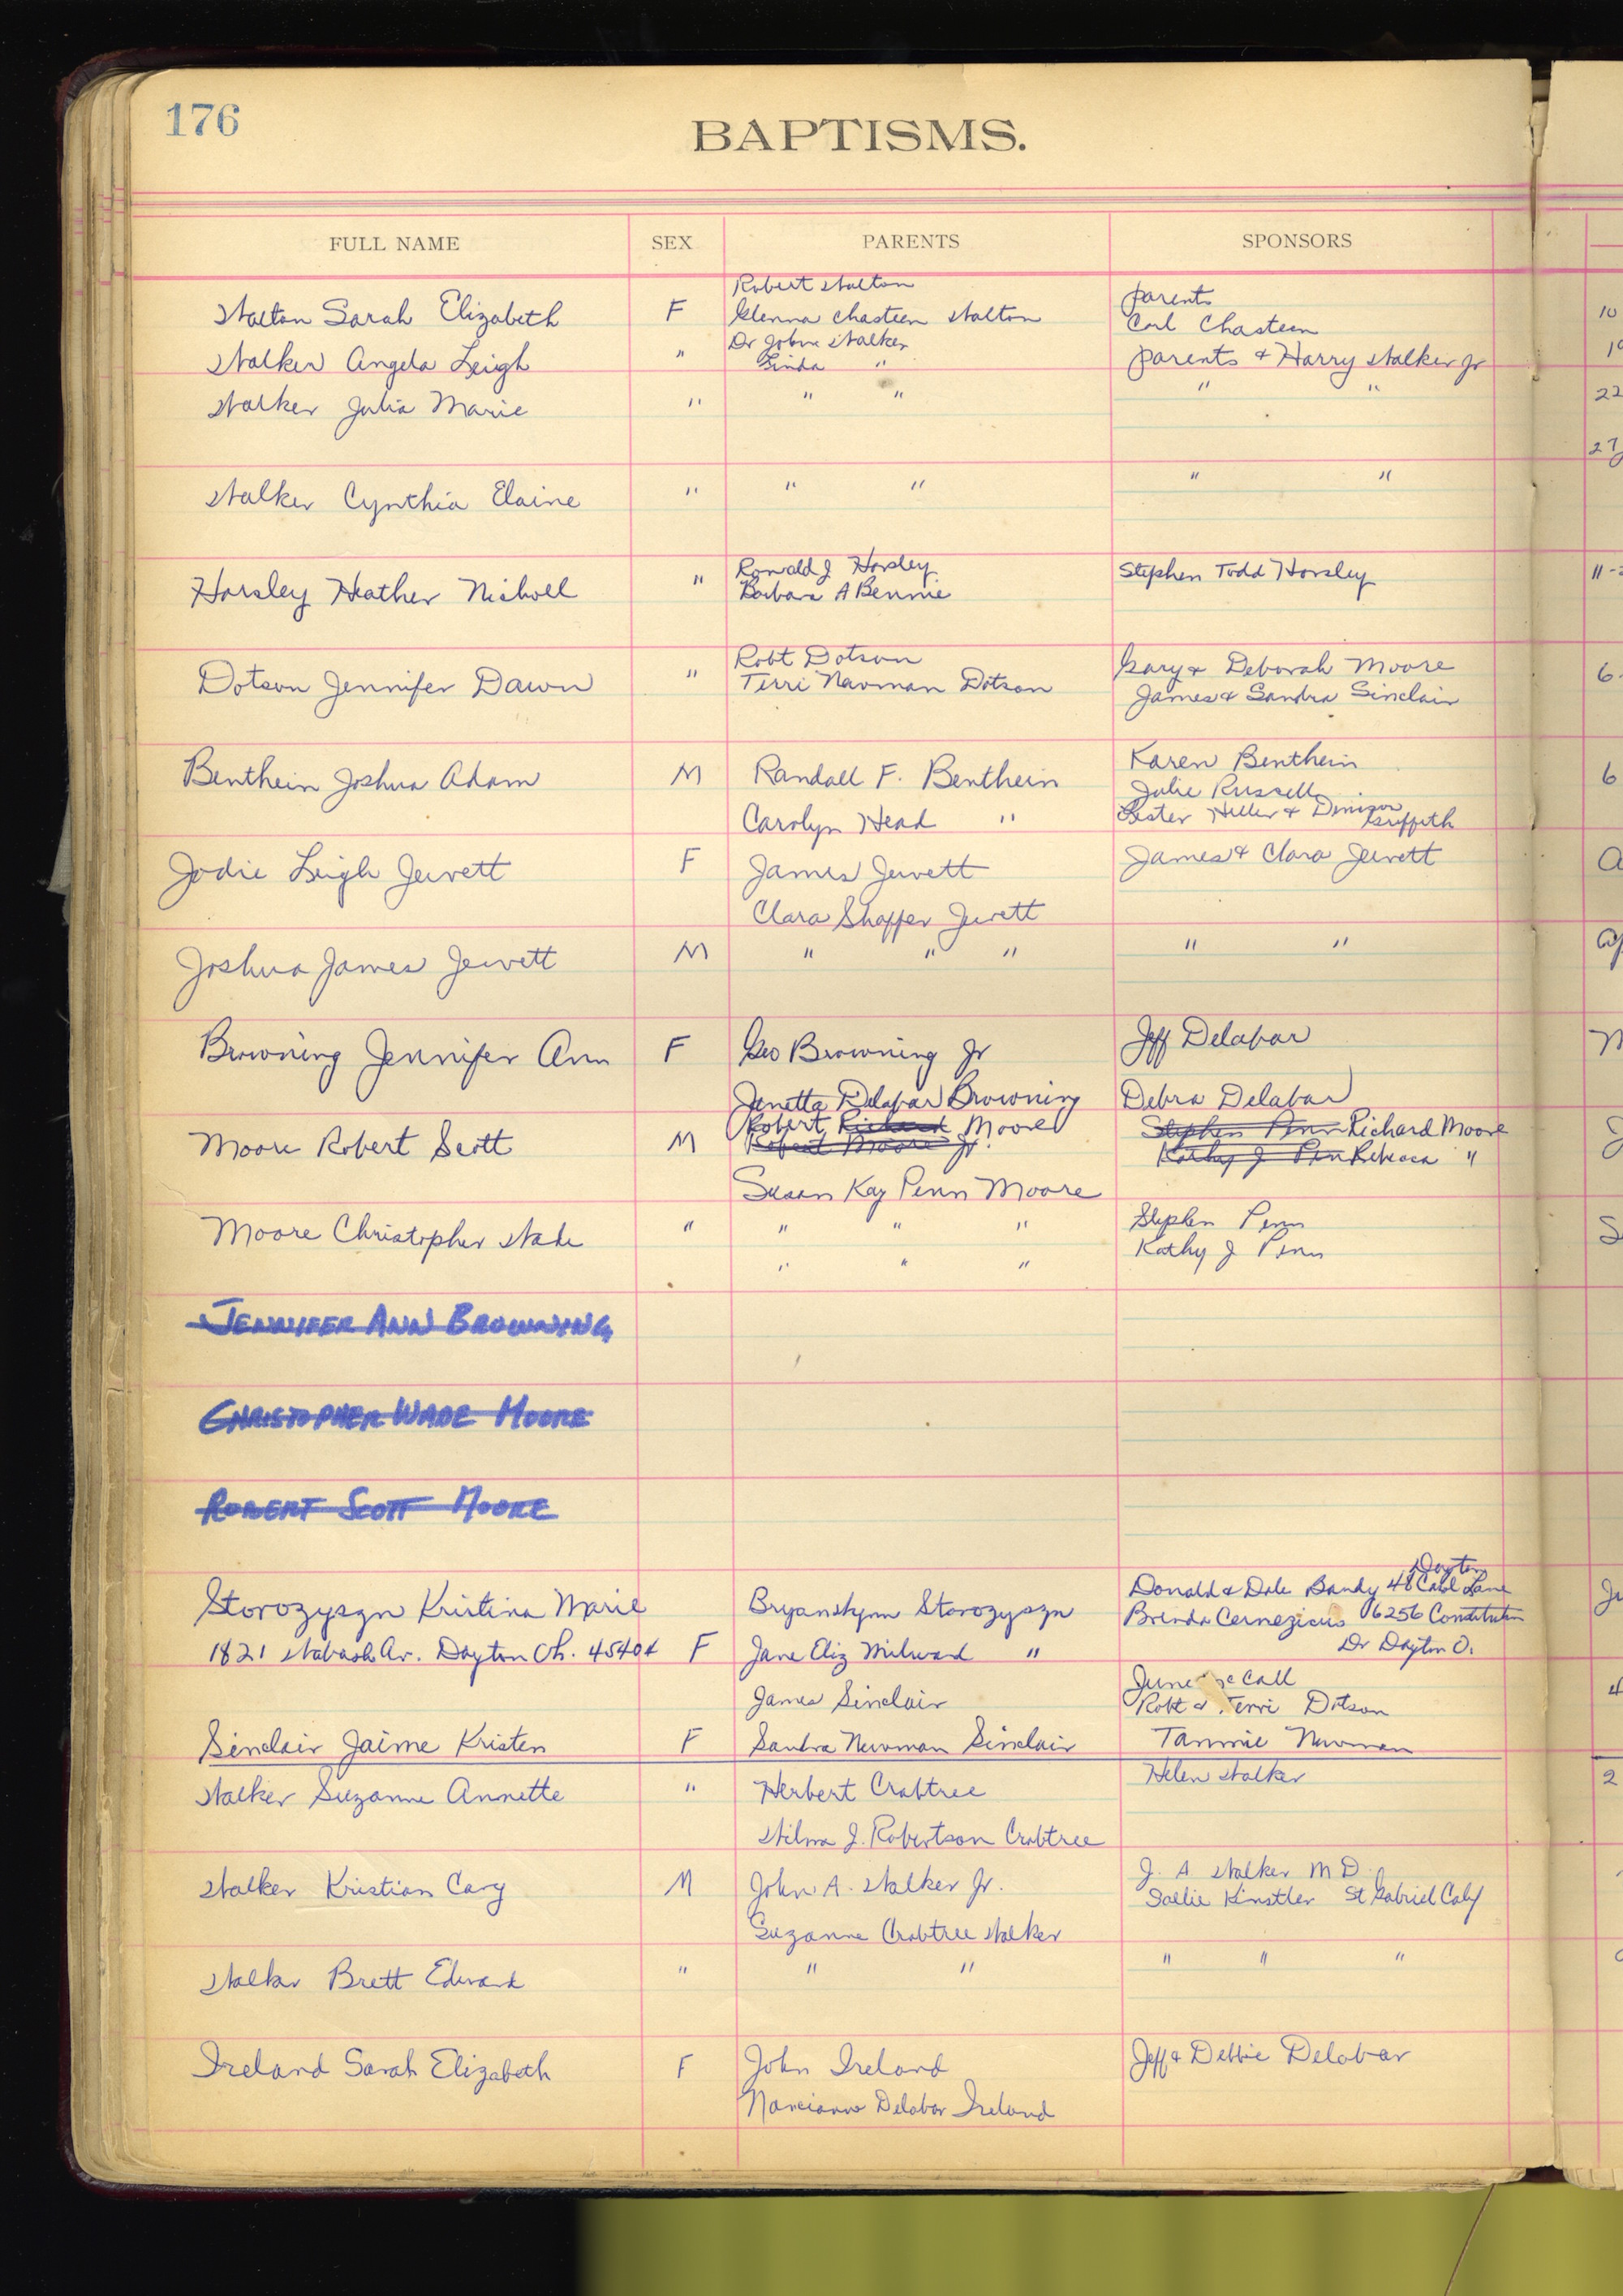 176
BAPTISMS.
FULL NAME SEX PARENTS SPONSORS
Robert Walton
Walton Sarah Elizabeth F Glenna Chasteen Walton parents
Carl Chasteen
10
Dr John Walker
Walker Angela Leigh " Linda " parents & Harry Walker Jr
Walker Julia Marie " " " " "
22
27
Walker Cynthia Elaine " " " " "
Horsley Heather Nicholl " Ronald J Horsley Stephen Todd Horsley
Barbara A Bennie
11-
Dotson Jennifer Dawn " Robt Dotson Gary & Deborah Moore
Terri Newman Dotson James & Sandra Sinclair
6
Benthein Joshua Adam M Randall F. Benthein Karen Benthein
Julie Russell
Carolyn Head " Lester Heller & Denison Griffith
6
Jodie Leigh Jewett F James Jewett James & Clara Jewett
Clara Shaffer Jewett
Joshua James Jewett M " " " " "
Browning Jennifer Ann F Geo Browning Jr Jeff Delabar
Janetta Delabar Browning Debra Delabar
Robert Richard Moore Stephen Penn Richard Moore
Moore Robert Scott M Robert Moore Jr. Kathy J Penn Rebecca "
Susan Kay Penn Moore
Moore Christopher Wade " " " " Stephen Penn
" " " Kathy J Penn
JENNIFER ANN BROWNING
CHRISTOPHER WADE MOORE
ROBERT SCOTT MOORE
Dayton
Storozyszn Kristina Marie Bryanskynn Storozyszn Donald & Dale Bandy 48 Carl Lane
Brenda Cernezicus 6256 Constitution
1821 Wabash Av. Dayton Oh. 45404 F Jane Eliz Milward " Dr Dayton O.
James Sinclair June Call
Robt & Terri Dotson
Sinclair Jaime Kristen F Sandra Newman Sinclair Tammie Newman
Walker Suzanne Annette " Herbert Crabtree Helen Walker
2
Wilma J. Robertson Crabtree
Walker Kristian Cary M John A. Walker Jr. J. A Walker M D.
Sallie Kinstler St Gabriel Calif
Suzanne Crabtree Walker
Walker Brett Edward " " " " " "
Ireland Sarah Elizabeth F John Ireland Jeff & Debbie Delabar
Nancianne Delabar Ireland